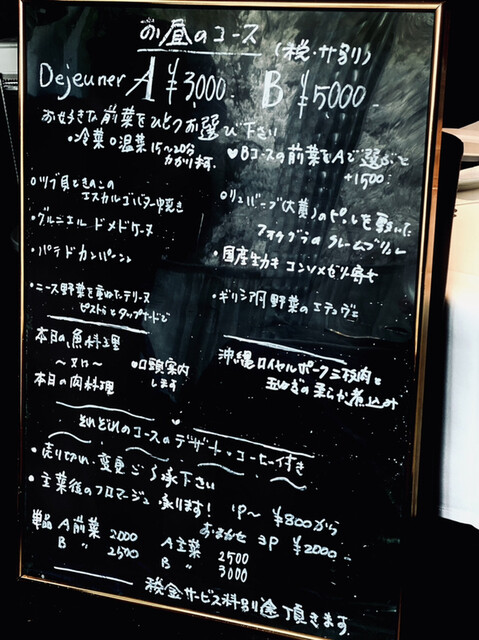 お昼のコース (税・サ別)
Dejeuner A ¥3000. B ¥5000.
お好きな前菜をひとつお選び下さい
・冷菜 ○温菜 15〜20分かかります.
♥Bコースの前菜をAで選ぶと
+1500
○ツブ貝ときのこの
エスカルゴバター
・グルニエル ドメドケーヌ
・パテドカンパーニュ
・ニース野菜を重ねたテリーヌ
ピストゥとタップナードで
フォアグラのクレームブリュレ
・国産生カキ コンソメゼリー寄せ
・ギリシア風野菜のエテュヴェ
本日の魚料理
〜又は〜
本日の肉料理
●口頭案内
します
沖縄ロイヤルポーク三枚肉と
玉ねぎの柔らか煮込み
それぞれのコースのデザート・コーヒー付き
・売り切れ・変更ご了承下さい
・主菜後のフロマージュ承ります! 1P〜 ¥800から
おまかせ 3P ¥2000
単品 A前菜 2000 A主菜 2500
B 〃 2500 B 〃 3000
税金サービス料別途頂きます